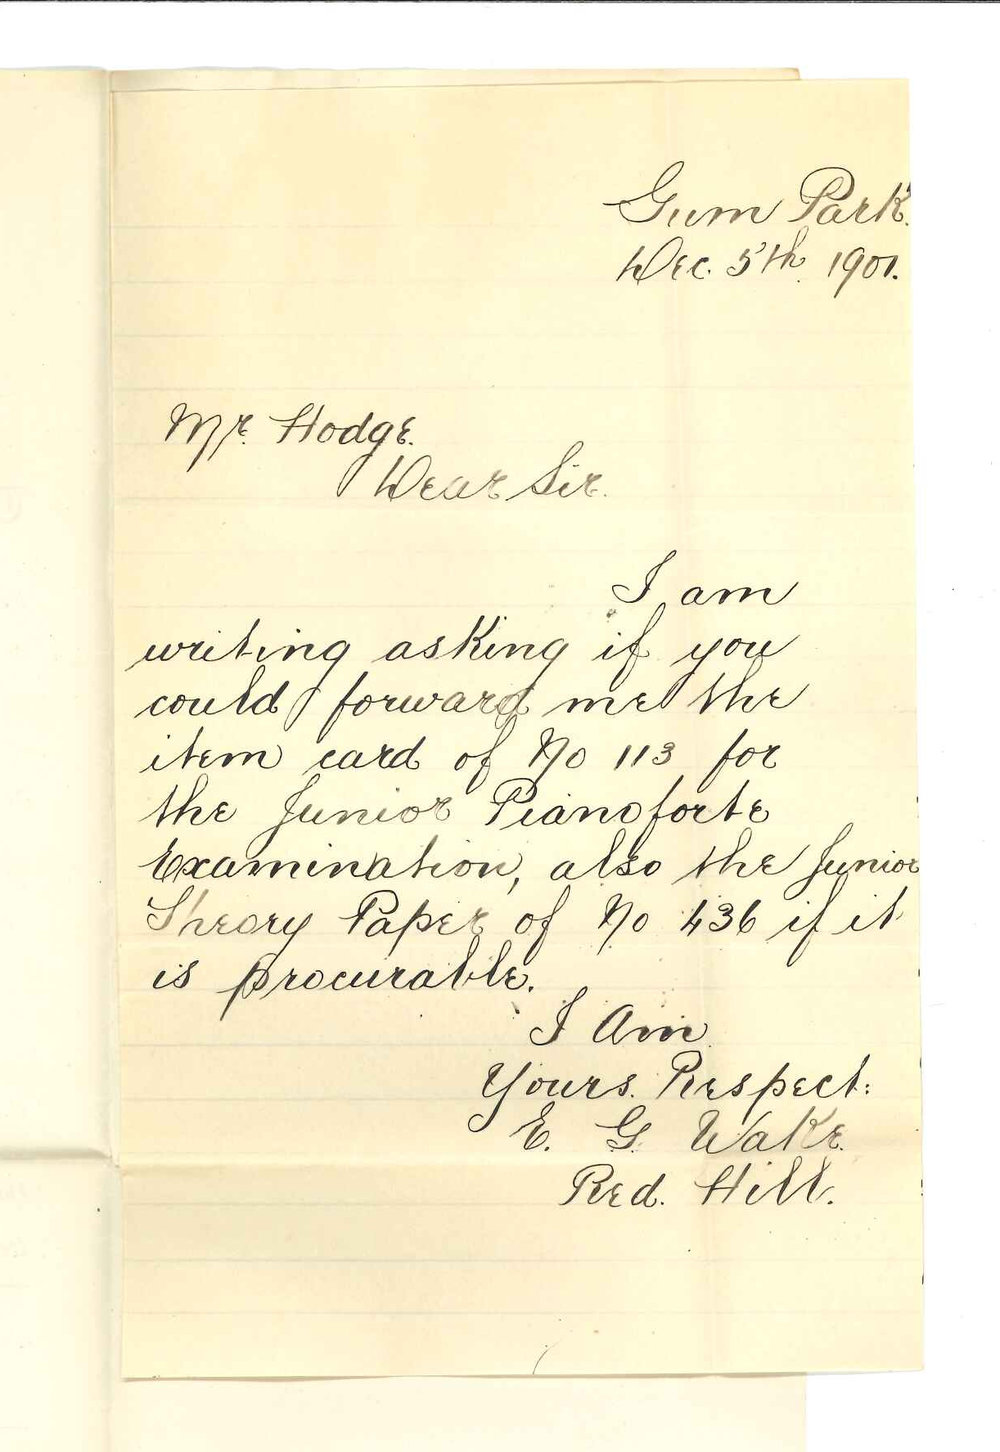 Gum Park.
Dec. 5th. 1901.
Mr. Hodge.
Dear Sir.
I am
writing asking if you
could forward me the
item card of No 113 for
the Junior Pianoforte
Examination, also the Junior
Theory Paper of No 436 if it
is procurable.
I Am
Yours. Respect:
E. G. Wake.
Red. Hill.